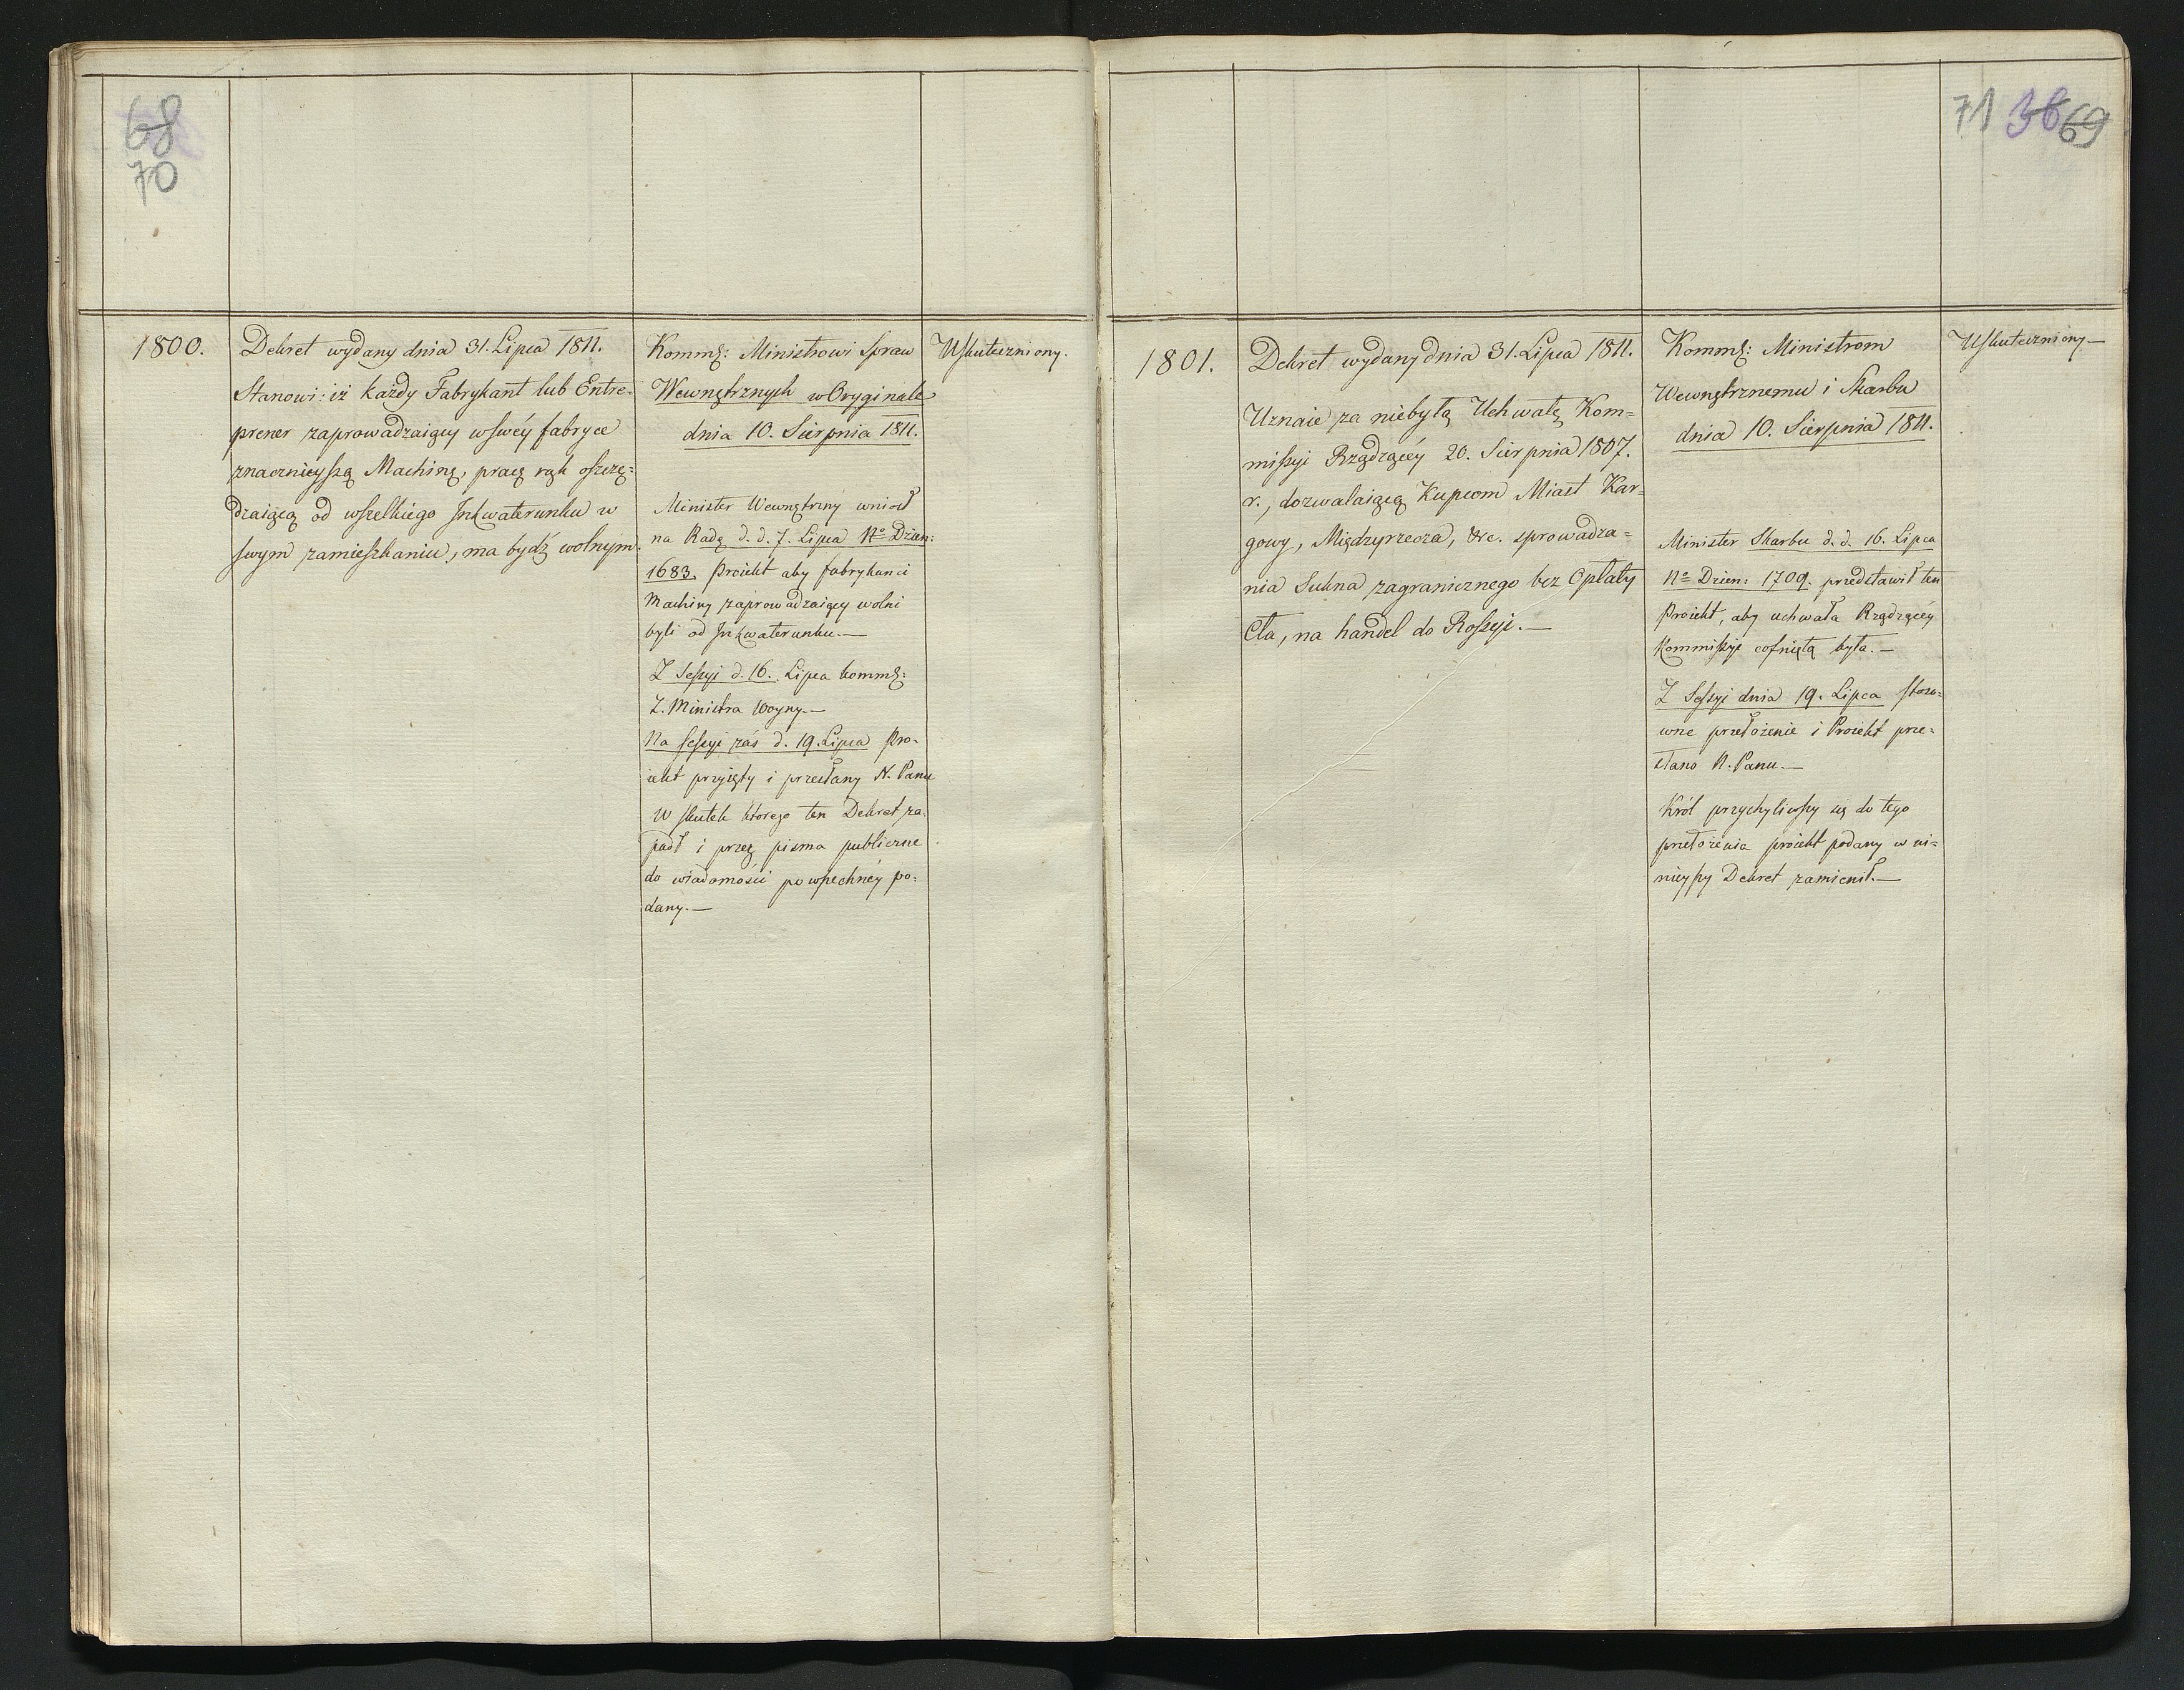 68
70
1800.
Dekret wydany dnia 31. Lipca 1811.
Stanowi: iż każdy Fabrykant lub Entre-
prener zaprowadzaiący w swéy fabryce
znacznieyszą Machinę, pracę rąk oszczę-
dzaiącą od wszelkiego Inkwaterunku w
swym zamieszkaniu, ma bydź wolnym.
Komm: Ministrowi Spraw
Wewnętrznych w Oryginale
dnia 10. Sierpnia 1811.
Minister Wewnętrzny wniosł
na Radę d. d. 7. Lipca No Dzien:
1683. Proiekt aby fabrykanci
Machiny zaprowadzaiący wolni
byli od Inkwaterunku.—
Z Sessyi d. 16. Lipca komm:
Z. Ministra Woyny.—
Na sessyi zaś d. 19. Lipca Pro-
iekt przyięty i przesłany N. Panu
W skutek ktorego ten Dekret za-
padł i przez pisma publiczne
do wiadomości powszechnéy po-
dany.—
Uskuteczniony.
71 36 69
1801.
Dekret wydany dnia 31. Lipca 1811.
Uznaie za niebyłą Uchwałę Kom=
missyi Rządzącéy 20. Sierpnia 1807.
r., dozwalaiącą Kupcom Miast Kar-
gowy, Międzyrzecza, &c. sprowadza=
nia Sukna zagranicznego bez Opłaty
Cła, na handel do Rossyi.—
Komm: Ministrom
Wewnętrznemu i Skarbu
dnia 10. Sierpnia 1811.
Minister Skarbu d. d. 16. Lipca
No Dzien: 1709. przedstawił ten
Proiekt, aby uchwała Rządzącéy
Kommissyi cofniętą była.—
Z Sessyi dnia 19. Lipca stoso-
wne przełożenie i Proiekt prze-
słano N. Panu.—
Król przychyliwszy się do tego
przełożenia proiekt podany w ni=
nieyszy Dekret zamienił.—
Uskuteczniony—